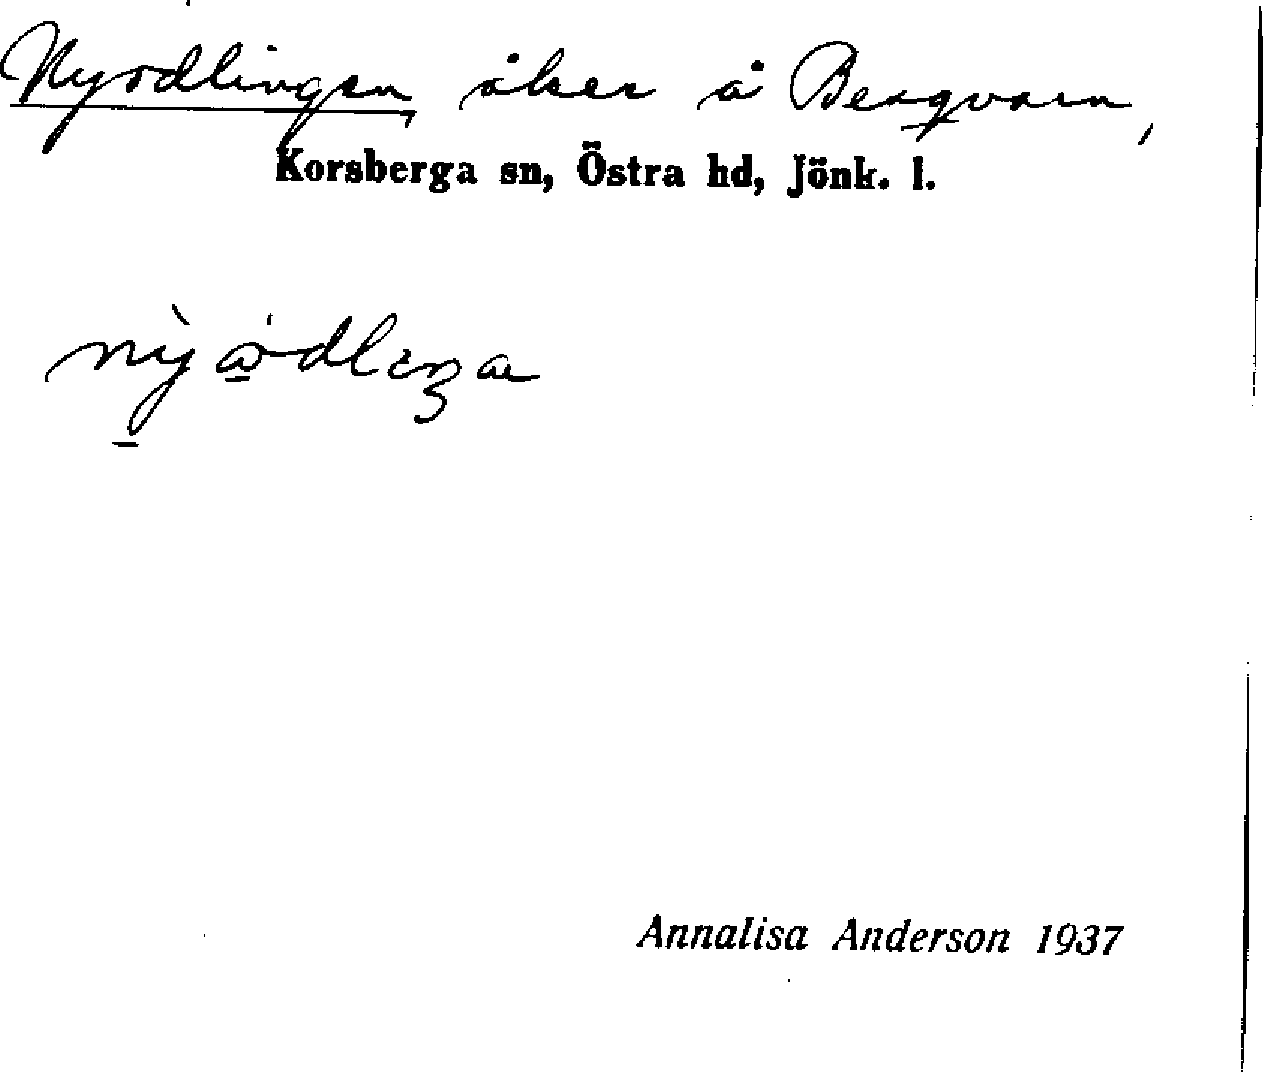 Nyodlingen, åker å Bergvarn,
Korsberga sn, Östra hd, Jönk. l.
Annalisa Anderson 1937